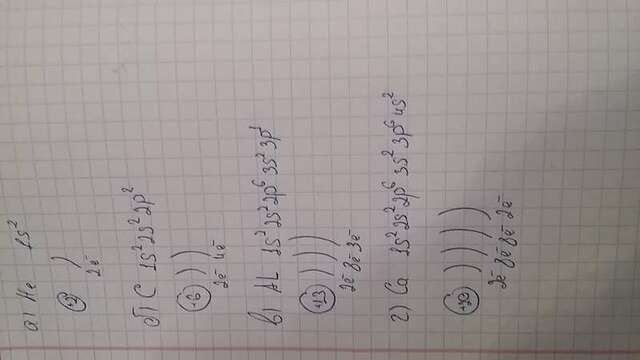 а) He 1s²
+2 )
2ē
б) C 1s² 2s² 2p²
+6 ) )
2ē 4ē
в) AL 1s² 2s² 2p⁶ 3s² 3p¹
+13 ) ) )
2ē 8ē 3ē
г) Ca 1s² 2s² 2p⁶ 3s² 3p⁶ 4s²
+20 ) ) ) )
2ē 8ē 8ē 2ē